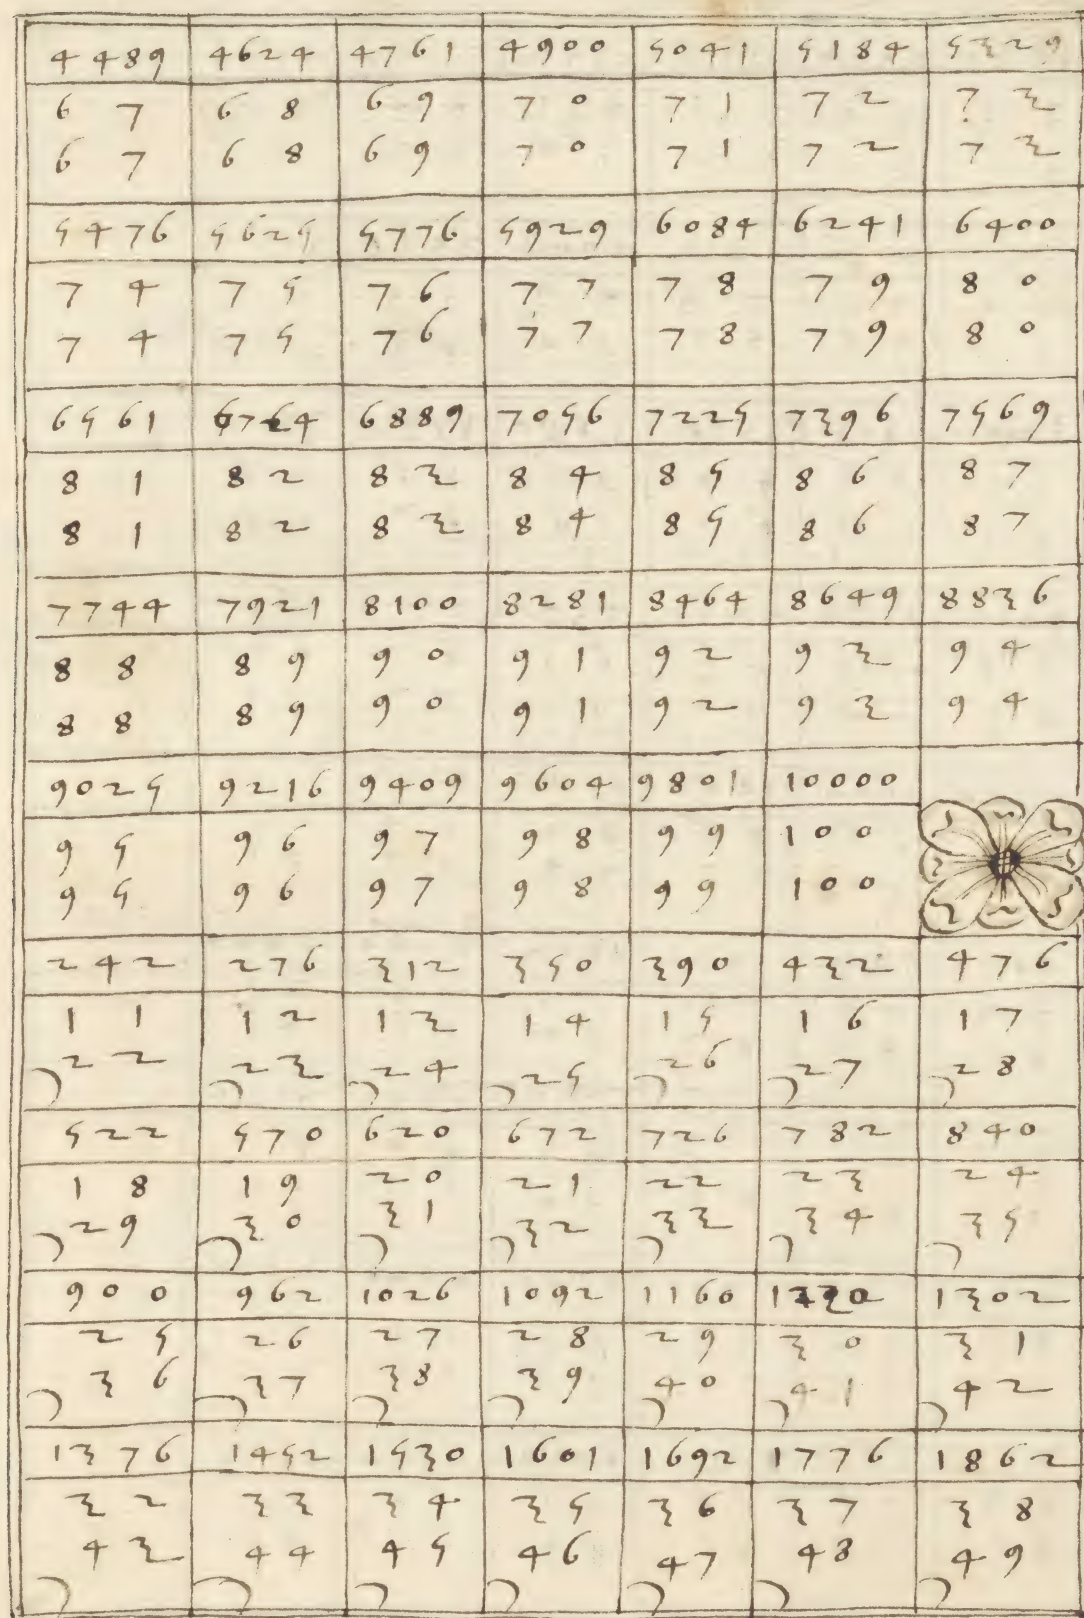 4489 4624 4761 4900 5041 5184 5329
67 68 69 70 71 72 73
67 68 69 70 71 72 73
5476 5625 5776 5929 6084 6241 6400
74 75 76 77 78 79 80
74 75 76 77 78 79 80
6561 6724 6889 7056 7225 7396 7569
81 82 83 84 85 86 87
81 82 83 84 85 86 87
7744 7921 8100 8281 8464 8649 8836
88 89 90 91 92 93 94
88 89 90 91 92 93 94
9025 9216 9409 9604 9801 10000
95 96 97 98 99 100
95 96 97 98 99 100
242 276 312 350 390 432 476
11 12 13 14 15 16 17
22 23 24 25 26 27 28
522 570 620 672 726 782 840
18 19 20 21 22 23 24
29 30 31 32 33 34 35
900 962 1026 1092 1160 1302
25 26 27 28 29 30 31
36 37 38 39 40 41 42
1376 1452 1530 1601 1692 1776 1862
32 33 34 35 36 37 38
43 44 45 46 47 48 49